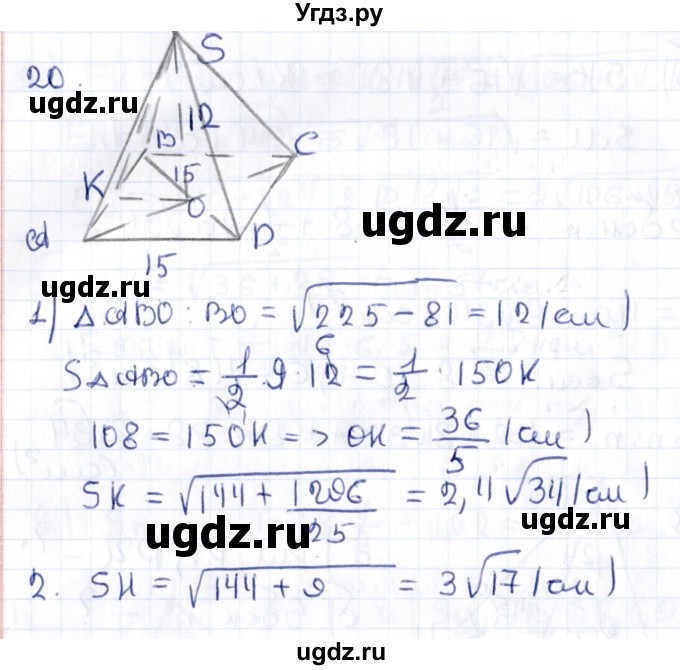 Угдз.ру
20.
ugdz.ru
S
12
B
C
K
15
O
A
D
ugdz.ru
15
ugdz.ru
1) ΔABO: BO = √225 - 81 = 12 (см)
SΔABO = 1/2 · 9 · 12 = 1/2 · 15OK
6
ugdz.ru
108 = 15OK => OK = 36/5 (см)
SK = √144 + 1296/25 = 2,4√34 (см)
ugdz.ru
ugdz.ru
2. SH = √144 + 9 = 3√17 (см)
ugdz.ru
ugdz.ru